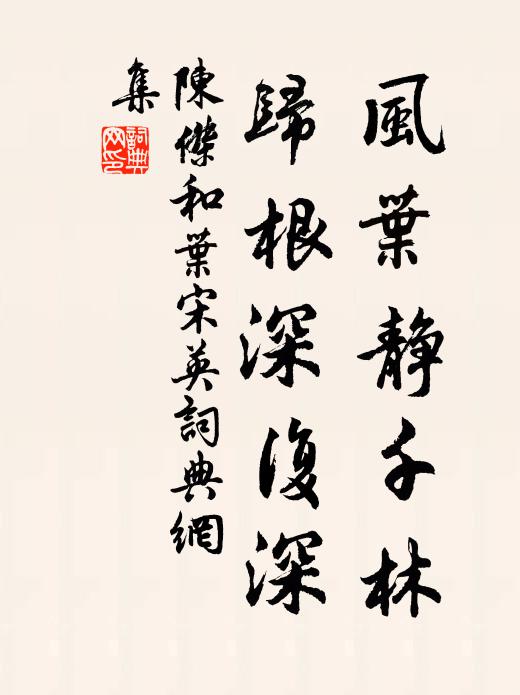 風葉静千林
歸根深復深
陳傑和葉宋英詞典網
集
詞典
网印